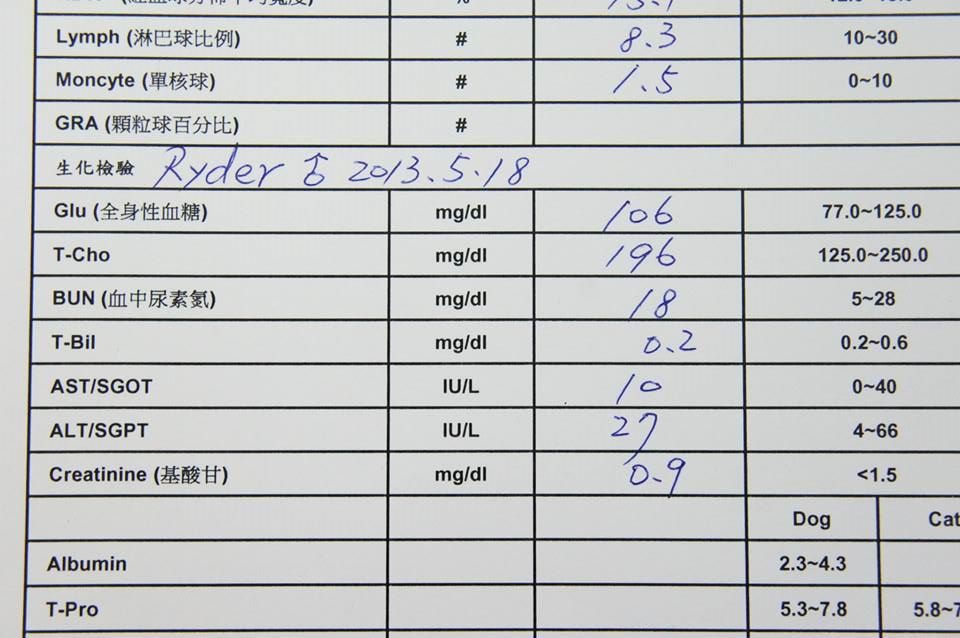 Lymph (淋巴球比例) # 8.3 10~30
Moncyte (單核球) # 1.5 0~10
GRA (顆粒球百分比) #
生化檢驗 Ryder ♂ 2013.5.18
Glu (全身性血糖) mg/dl 106 77.0~125.0
T-Cho mg/dl 196 125.0~250.0
BUN (血中尿素氮) mg/dl 18 5~28
T-Bil mg/dl 0.2 0.2~0.6
AST/SGOT IU/L 10 0~40
ALT/SGPT IU/L 27 4~66
Creatinine (基酸甘) mg/dl 0.9 <1.5
Dog Cat
Albumin 2.3~4.3
T-Pro 5.3~7.8 5.8~7